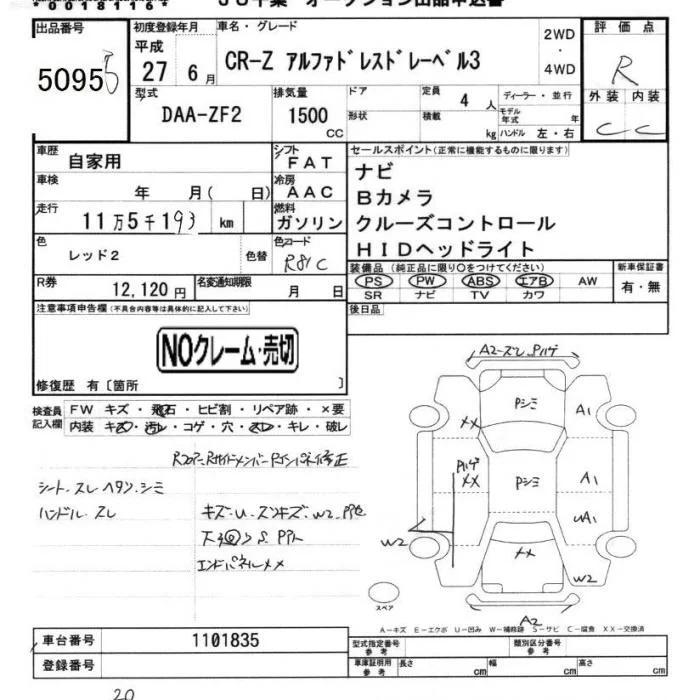 *00181164*
JU千葉 オークション出品申込書
出品番号
5095
初度登録年月
平成
27 6月
車名・グレード
CR-Z アルファドレスドレーベル3
2WD
・
4WD
評価点
R
外装 内装
C C
型式
DAA-ZF2
排気量
1500
CC
ドア
形状
定員
4 人
積載
kg
ディーラー・並行
モデル
年式 年
ハンドル 左・右
車歴
自家用
シフト
FAT
セールスポイント(正常に機能するものに限ります)
ナビ
Bカメラ
クルーズコントロール
HIDヘッドライト
車検
年 月( 日)
冷房
AAC
走行
11万5千193 km
燃料
ガソリン
色
レッド2
色替
色コード
R81C
装備品(純正品に限り○をつけてください)
PS PW ABS エアB AW
SR ナビ TV カワ
新車保証書
有・無
R券
12,120円
名変通知期限
月 日
後日品
注意事項申告欄(不具合内容等は具体的に記入して下さい)
NOクレーム・売切
修復歴 有〔箇所 〕
検査員
記入欄
FW キズ・飛石・ヒビ割・リペア跡・×要
内装 キズ・汚レ・コゲ・穴・スレ・キレ・破レ
シート.スレ ヘタン.シミ
ハンドル.スレ
キズ.U.
W2.
エンドパネルメメ
A2-スレ.Pハゲ
Pシミ
メメ
A1
Pハゲ
メメ
Pシミ
A1
UA1
W2
メメ
W2
A2
スペア
A-キズ E-エクボ U-凹み W-補修跡 S-サビ C-腐食 XX-交換済
車台番号
1101835
登録番号
型式指定番号
参考
類別区分番号
参考
車庫証明用
参考
長さ cm
幅 cm
高さ cm
20